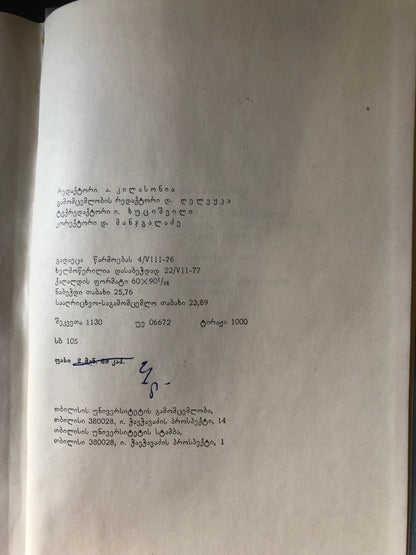 რედაქტორი ა. კილასონია
გამომცემლობის რედაქტორი დ. ღელეყვა
ტექრედაქტორი ი. ხუციშვილი
კორექტორი დ. მანჯგალაძე
გადაეცა წარმოებას 4/VIII-76
ხელმოწერილია დასაბეჭდად 22/VII-77
ქაღალდის ფორმატი 60×90¹/₁₆
ნაბეჭდი თაბახი 25,76
სააღრიცხვო-საგამომცემლო თაბახი 23,89
შეკვეთა 1130 უე 06672 ტირაჟი 1000
სბ 105
ფასი 2 მან. კაპ.
თბილისის უნივერსიტეტის გამომცემლობა,
თბილისი 380028, ი. ჭავჭავაძის პროსპექტი, 14
თბილისის უნივერსიტეტის სტამბა,
თბილისი 380028, ი. ჭავჭავაძის პროსპექტი, 1